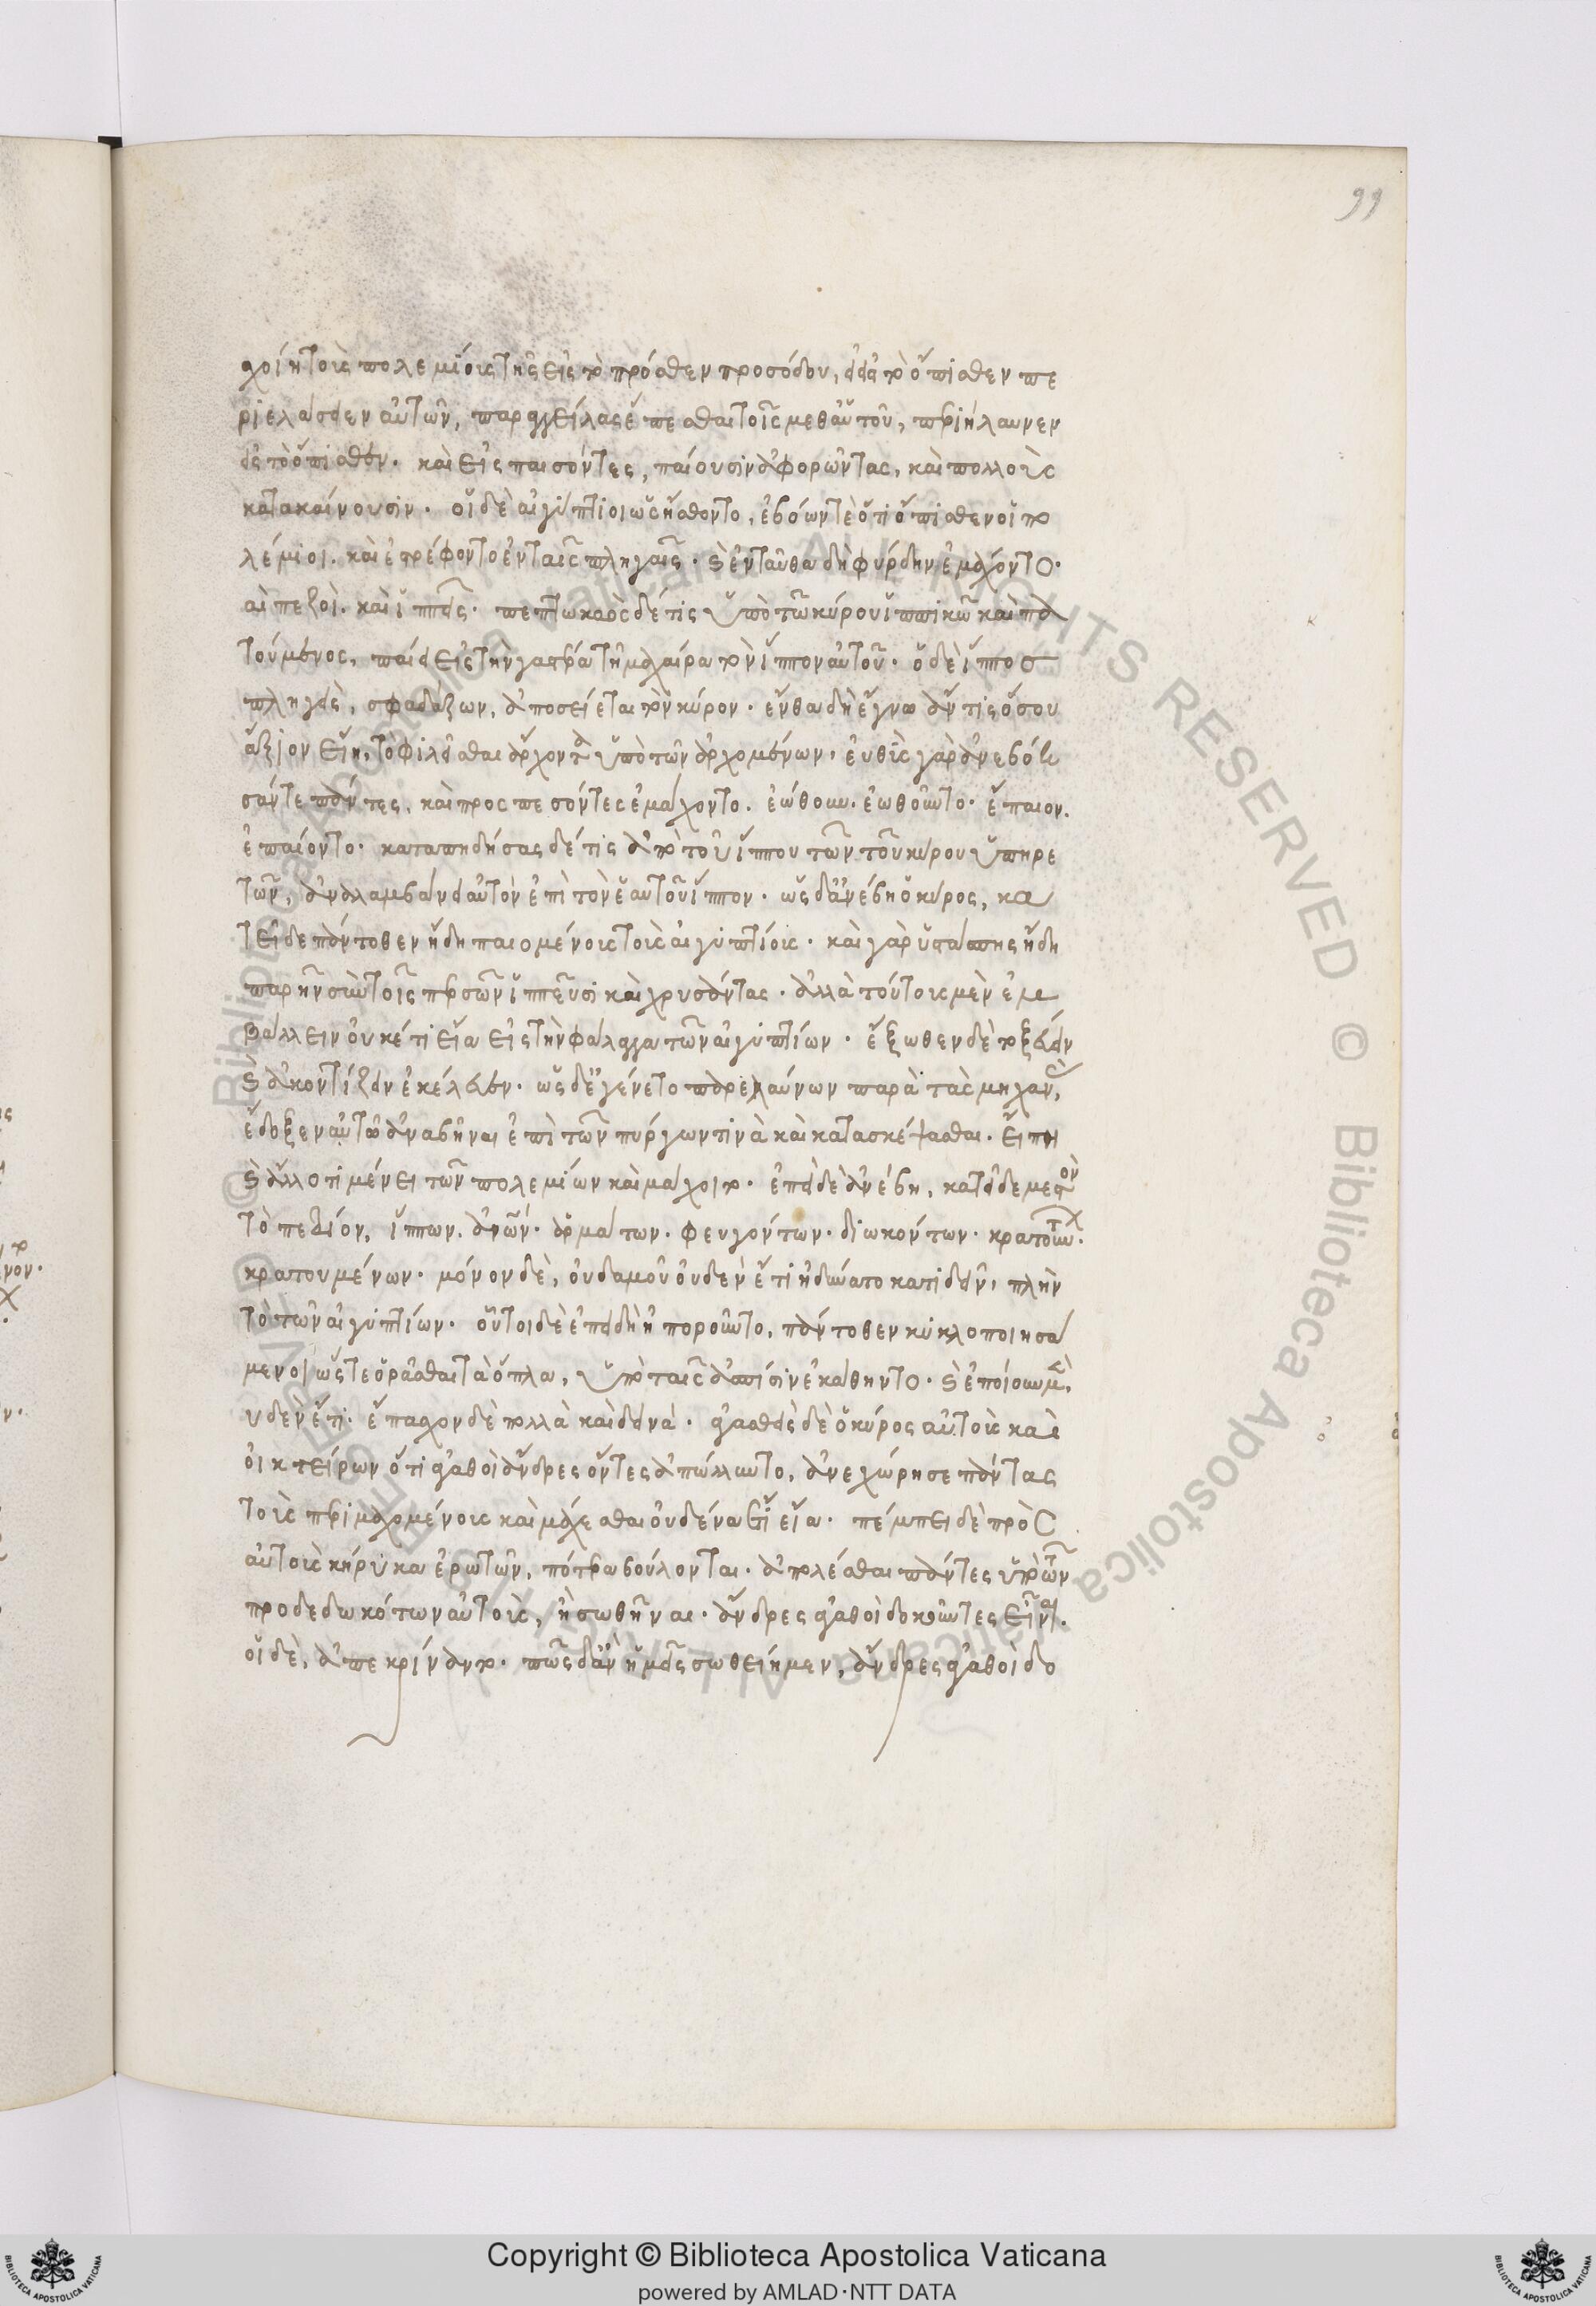 99
σχοίη τοὺς πολεμίους τῆς εἰς τὸ πρόσθεν προσόδου, εἰ εἰς τὸ ὄπισθεν πε
ριελάσειεν αὐτῶν, παραγγείλας ἕπεσθαι τοῖς μεθ' αὑτοῦ, περιήλαυνεν
εἰς τὸ ὄπισθεν. καὶ εἰσπεσόντες, παίουσιν ἀφορῶντας, καὶ πολλοὺς
κατακαίνουσιν. οἱ δὲ αἰγύπτιοι ὡς ᾔσθοντο, ἐβόων τὲ ὅτι ὄπισθεν οἱ πο
λέμιοι. καὶ ἐστρέφοντο ἐν ταῖς πληγαῖς. καὶ ἐνταῦθα δὴ φύρδην ἐμάχοντο.
καὶ πεζοὶ. καὶ ἱππεῖς. πεπτωκὼς δέ τις ὑπὸ τῶ κύρου ἵππω καὶ πα
τούμενος, παίει εἰς τὴν γαστέρα τῆ μαχαίρα τὸν ἵππον αὐτοῦ. ὁ δὲ ἵππος
πληγεὶς, σφαδάζων, ἀποσείεται τὸν κύρον. ἔνθα δὴ ἔγνω ἄν τις ὅσου
ἄξιον εἴη, τὸ φιλεῖσθαι ἄρχοντα ὑπὸ τῶν ἀρχομένων. εὐθὺς γὰρ ἀνεβόη
σάν τε πάντες, καὶ προσπεσόντες ἐμάχοντο. ἐώθουν. ἐωθοῦντο. ἔπαιον.
ἐπαίοντο. καταπηδήσας δέ τις ἀπὸ τοῦ ἵππου τῶν τοῦ κύρου ὑπηρε
τῶν, ἀναλαμβάνει αὐτὸν ἐπὶ τὸν ἑαυτοῦ ἵππον. ὡς δ' ἀνέβη ὁ κύρος, κα
τεῖδε πάντοθεν ἤδη παιομένους τοὺς αἰγυπτίους. καὶ γὰρ ὑστάσπης ἤδη
παρῆν σὺν τοῖς περσῶν ἱππεῦσι καὶ χρυσάντας. ἀλλὰ τούτους μὲν ἐμ
βάλλειν οὐκέτι εἴα εἰς τὴν φάλαγγα τῶν αἰγυπτίων. ἔξωθεν δὲ τοξεύειν
καὶ ἀκοντίζειν ἐκέλευεν. ὡς δ' ἐγένετο παρελαύνων παρὰ τὰς μηχανὰς,
ἔδοξεν αὐτῶ ἀναβῆναι ἐπὶ τῶν πύργων τινὰ καὶ κατασκέψασθαι. εἴ πη
καὶ ἄλλο τι μένει τῶν πολεμίων καὶ μάχοιτο. ἐπεὶ δὲ ἀνέβη, κατεῖδε μεστὸν
τὸ πεδίον, ἵππων. ἀνῶν. ἁρμάτων. φευγόντων. διωκόντων. κρατούντων.
κρατουμένων. μόνον δὲ, οὐδαμοῦ οὐδὲν ἔτι ἠδύνατο κατιδεῖν, πλὴν
τὸ τῶν αἰγυπτίων. οὗτοι δὲ ἐπειδὴ ἠποροῦντο, πάντοθεν κύκλο ποιησά
μενοι ὥστε ὁρᾶσθαι τὰ ὅπλα, ὑπὸ ταῖς ἀσπίσιν ἐκάθηντο. καὶ ἐποίουν μὲν,
οὐδὲν ἔτι. ἔπασχον δὲ πολλὰ καὶ δεινά. ἀγασθεὶς δὲ ὁ κύρος αὐτοὺς καὶ
οἰκτείρων ὅτι ἀγαθοὶ ἄνδρες ὄντες ἀπώλλυντο, ἀνεχώρησε πάντας
τοὺς περιμαχομένους καὶ μάχεσθαι οὐδένα ἔτι εἴα. πέμπει δὲ πρὸς
αὐτοὺς κήρυκα ἐρωτῶν, πότερα βούλονται. ἀπολέσθαι πάντες ὑπὸ τῶν
προδεδωκότων αὐτοὺς, ἢ σωθῆναι. ἄνδρες ἀγαθοὶ δοκοῦντες εἶναι.
οἱ δὲ, ἀπεκρίναντο. πῶς δ' ἂν ἡμεῖς σωθείημεν, ἄνδρες ἀγαθοὶ δο
Copyright © Biblioteca Apostolica Vaticana
powered by AMLAD·NTT DATA